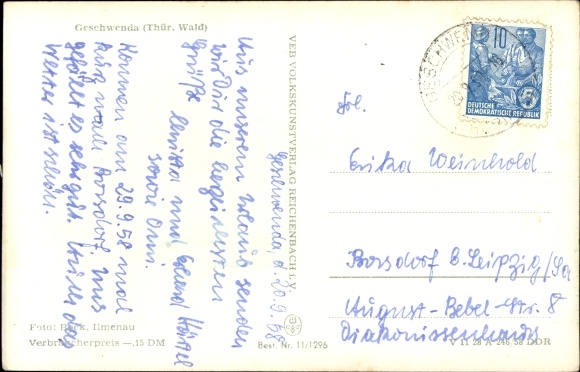 Geschwenda (Thür. Wald)
Geschwenda, d. 20.9.58
Aus unserem Urlaub senden
wir Dir die herzlichsten
Grüße
und Erhard
sowie Omi.
Kommen am 29.9.58 mal
kurz nach Borsdorf. Uns
gefällt es sehr gut. Auch das
Wetter ist schön.
Foto: Beck, Ilmenau
Verbraucherpreis —,15 DM
VEB VOLKSKUNSTVERLAG REICHENBACH I. V.
Best. Nr. 11/1296
10
DEUTSCHE
DEMOKRATISCHE REPUBLIK
Frl.
Erika Weinhold
Borsdorf b. Leipzig/Sa
August-Bebel-Str. 8
Diakonissenhaus
V 11 28 A 246/58 DDR